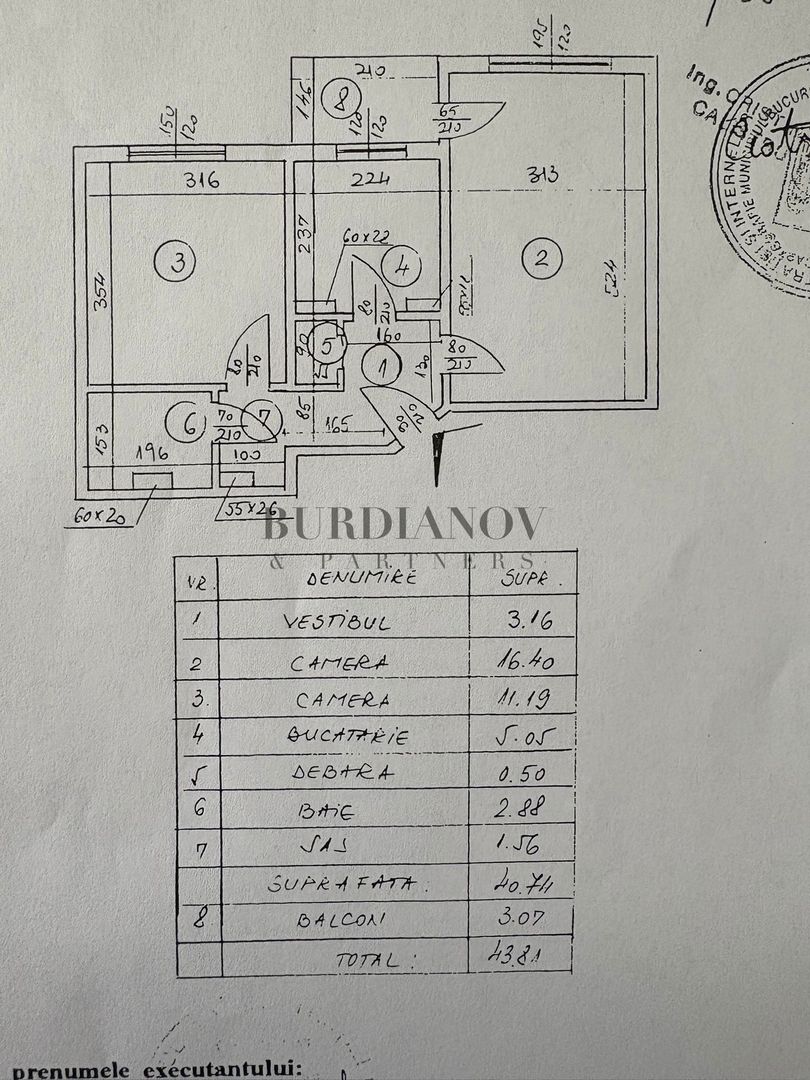 195
120
210
8
146
120
120
65
210
Ing.
150
120
316
224
313
237
60x22
3
4
2
354
524
80
210
90
5
160
1
130
80
210
80
210
85
165
90
210
6
70
210
7
153
196
100
60x20
55x26
BURDIANOV
& PARTNERS
NR. DENUMIRE SUPR.
1 VESTIBUL 3.16
2 CAMERA 16.40
3. CAMERA 11.19
4 BUCATARIE 5.05
5 DEBARA 0.50
6 BAIE 2.88
7 SAS 1.56
SUPRAFATA: 40.74
8 BALCON 3.07
TOTAL: 43.81
prenumele executantului: